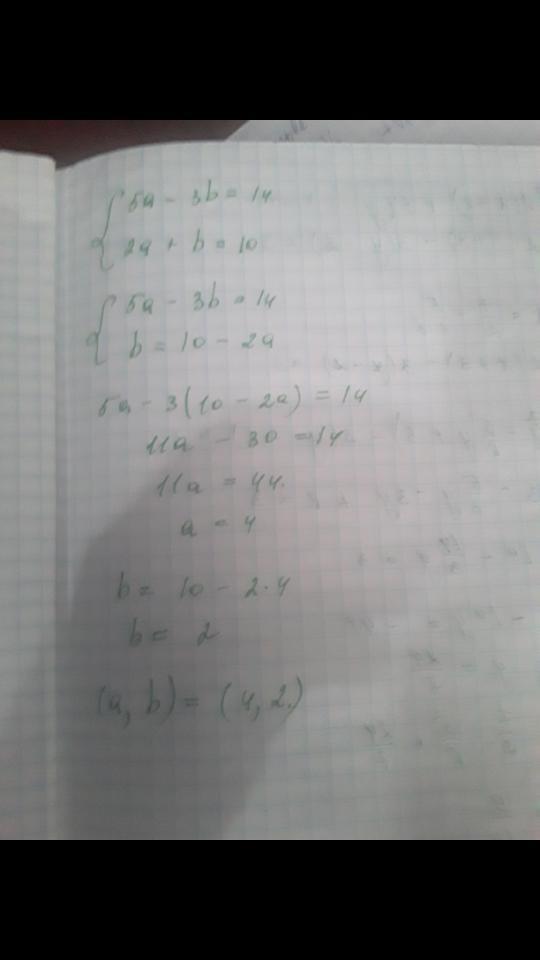 5a - 3b = 14
2a + b = 10
5a - 3b = 14
b = 10 - 2a
5a - 3(10 - 2a) = 14
11a - 30 = 14
11a = 44.
a = 4
b = 10 - 2·4
b = 2
(a, b) = (4, 2.)